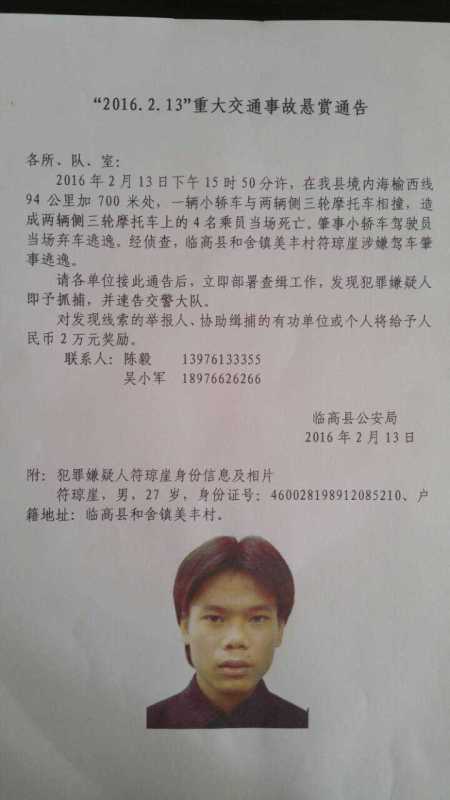 “2016.2.13”重大交通事故悬赏通告
各所、队、室：
2016年2月13日下午15时50分许，在我县境内海榆西线
94公里加700米处，一辆小轿车与两辆侧三轮摩托车相撞，造
成两辆侧三轮摩托车上的4名乘员当场死亡。肇事小轿车驾驶员
当场弃车逃逸。经侦查，临高县和舍镇美丰村符琼崖涉嫌驾车肇
事逃逸。
请各单位接此通告后，立即部署查缉工作，发现犯罪嫌疑人
即予抓捕，并速告交警大队。
对发现线索的举报人、协助缉捕的有功单位或个人将给予人
民币2万元奖励。
联系人：陈毅 13976133355
吴小军 18976626266
临高县公安局
2016年2月13日
附：犯罪嫌疑人符琼崖身份信息及相片
符琼崖，男，27岁，身份证号：460028198912085210、户
籍地址：临高县和舍镇美丰村。